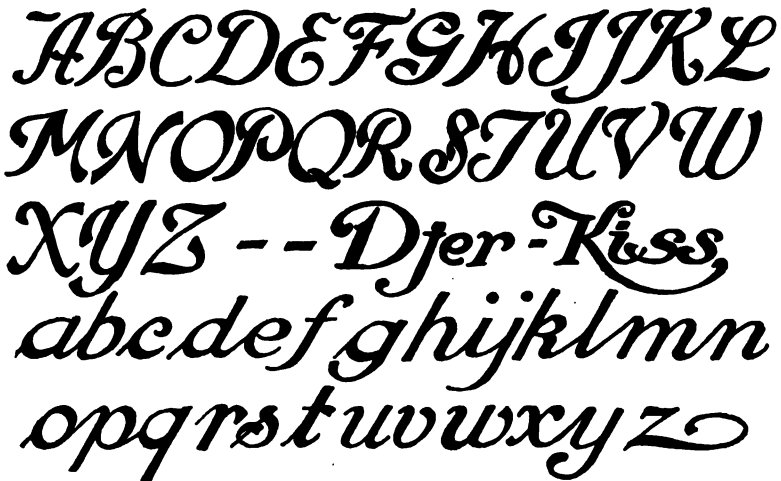 ABCDEFGHIJKL
MNOPQRSTUVW
XYZ -- Djer-Kiss,
abcdefghijklmn
opqrstuvwxyz